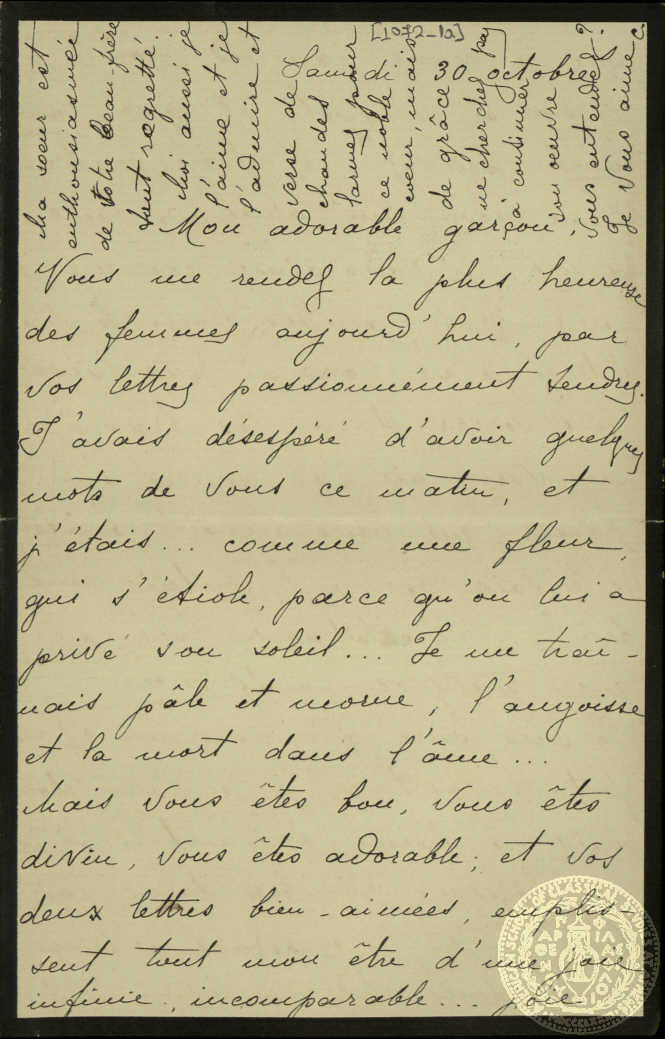 [1072-1a]
Samedi 30 octobre
Mon adorable garçon,
Vous me rendez la plus heureuse
des femmes aujourd'hui, par
vos lettres passionnément tendres.
J'avais désespéré d'avoir quelques
mots de vous ce matin, et
j'étais... comme une fleur,
qui s'étiole, parce qu'on lui a
privé son soleil... Je me traî-
nais pâle et morne, l'angoisse
et la mort dans l'âme...
Mais vous êtes bon, vous êtes
divin, vous êtes adorable; et vos
deux lettres bien-aimées, emplis-
sent tout mon être d'une joie
infinie, incomparable... joie
Ma soeur est
enthousiasmée
de votre beau-frère
tant regretté.
Moi aussi je
l'aime et je
l'admire et
verse de
chaudes
larmes pour
ce noble
coeur, mais
de grâce
ne cherchez pas
à continuer
son oeuvre
vous entendez?
Je vous aime